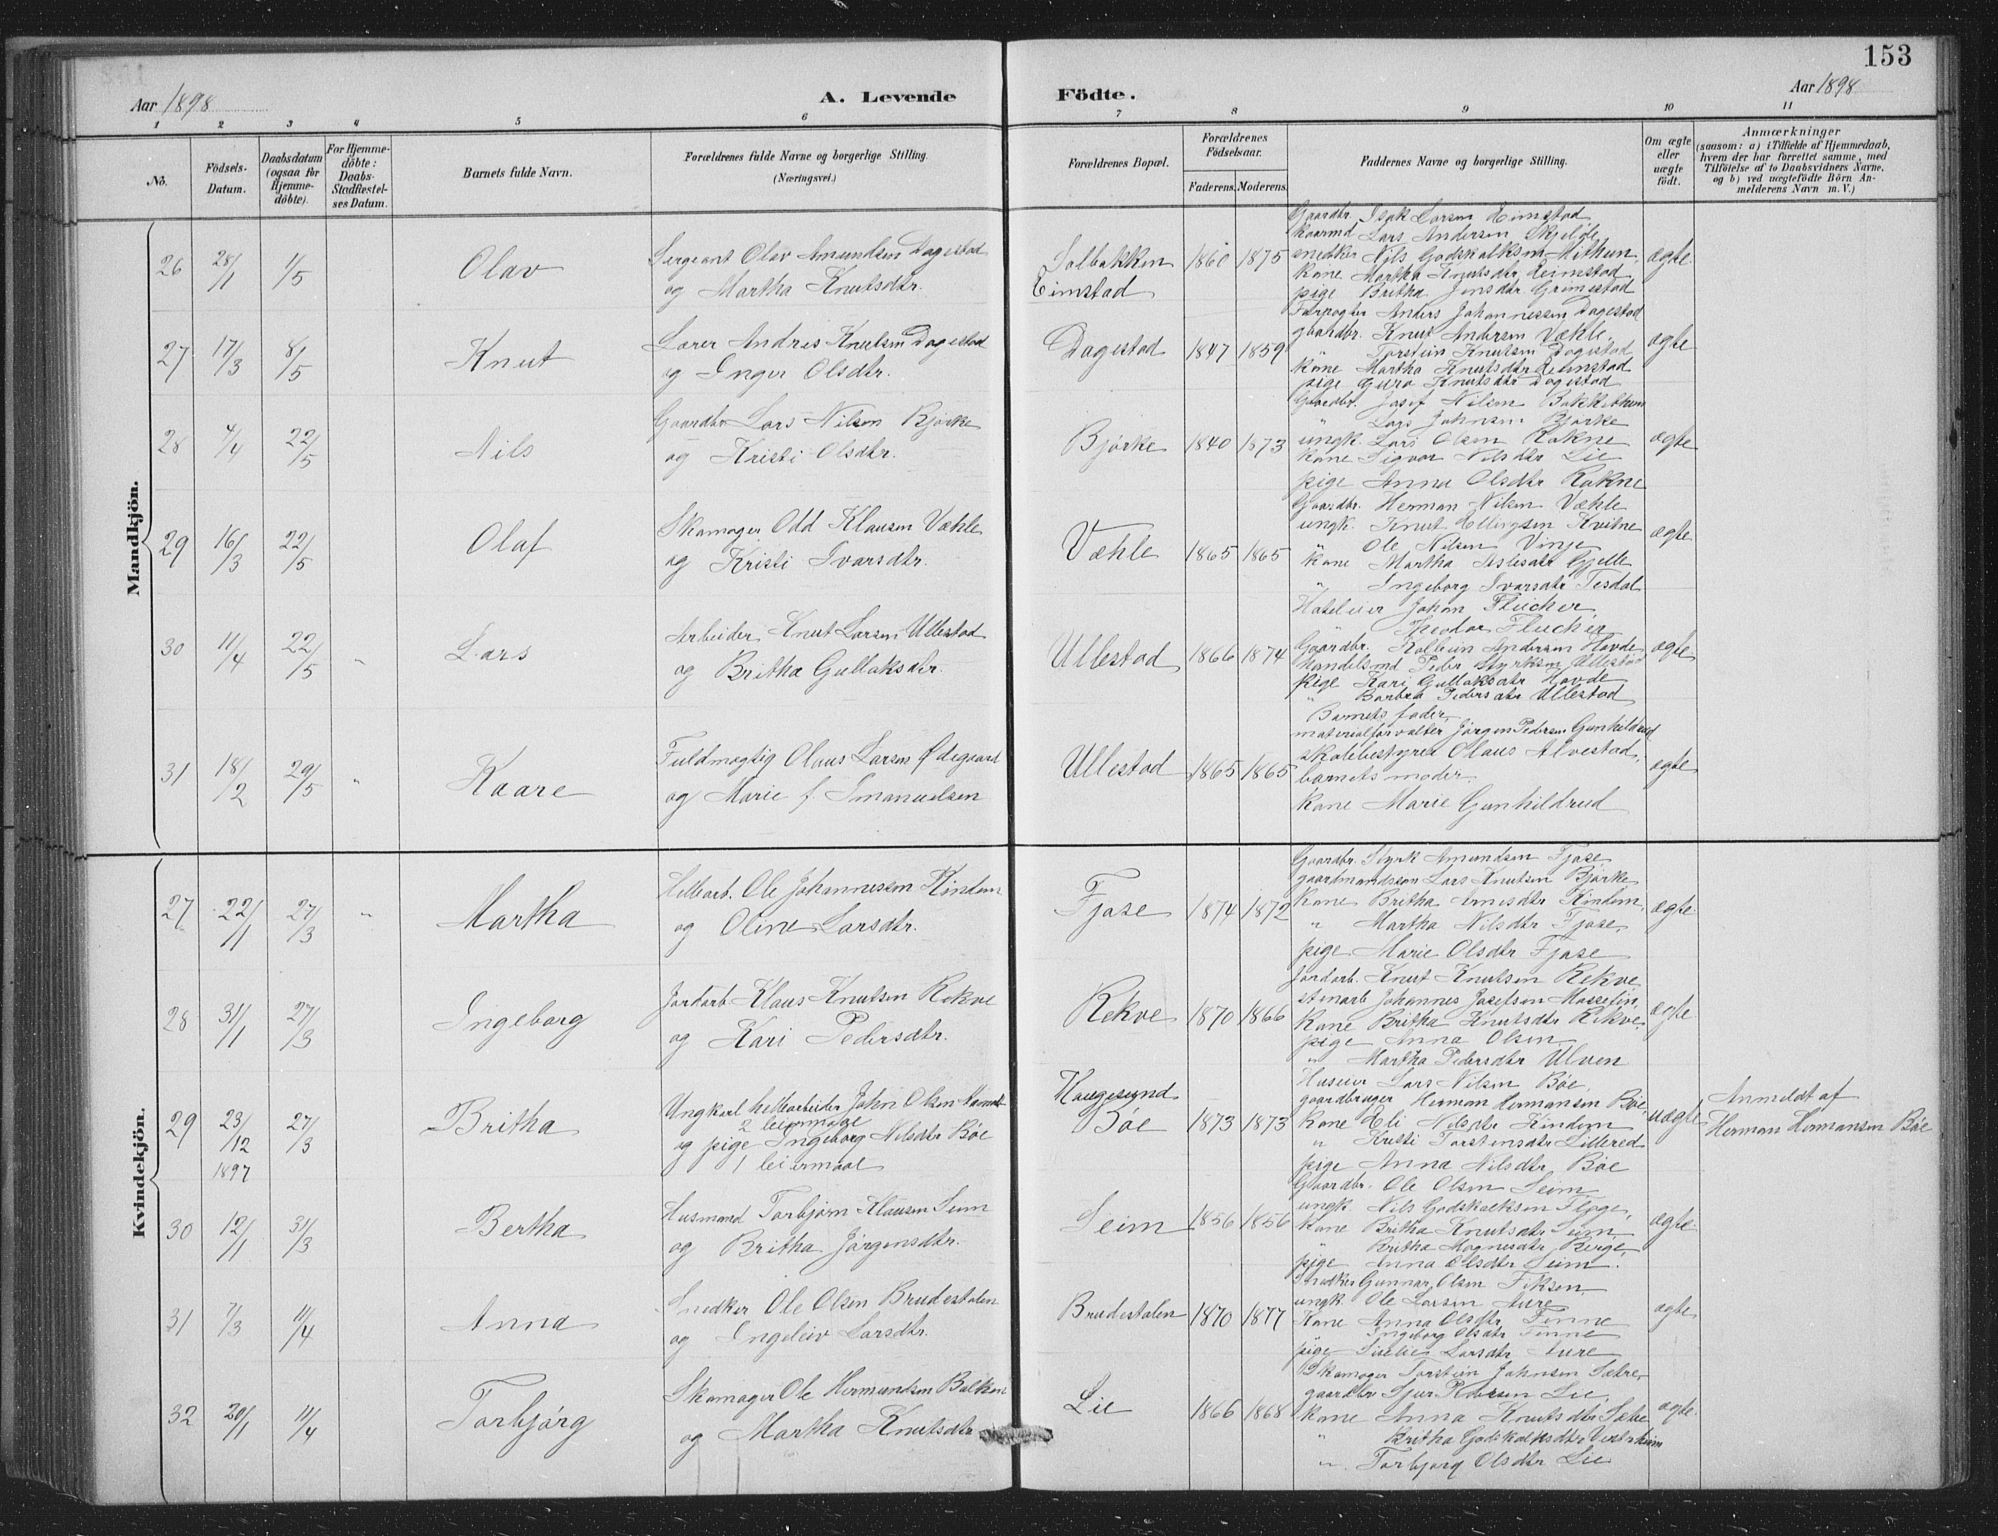 153
Aar 1898
A. Levende
Födte.
Aar 1898
1 2 3 4 5 6 7 8 9 10 11
No.
Födsels-Datum.
Daabsdatum (ogsaa for Hjemme-döbte).
For Hjemme-döbte: Daabs-Stadfæstel-ses Datum.
Barnets fulde Navn.
Forældrenes fulde Navne og borgerlige Stilling.
(Næringsvei.)
Forældrenes Bopæl.
Forældrenes Födselsaar.
Faderens. Moderens.
Faddernes Navne og borgerlige Stilling.
Om ægte eller uægte födt.
Anmærkninger
(saasom: a) i Tilfælde af Hjemmedaab, hvem der har forrettet samme, med Tilföielse af to Daabsvidners Navne, og b) ved uægtefödte Börn An-melderens Navn m. V.)
Mandkjön.
26 28/1 1/5 Olav
Sergeant Olav Amundsen Dagestad
og Martha Knutsdtr.
Solbakken
Eimstad
1860 1875
Gaardbr. Isak Larsen Eimstad
Kaarmd Lars Andersen Skjelde
snedker Nils Godskalksen Mithun
Kone Martha Knutsdtr Eimstad
pige Britha Jensdtr Grimestad
ægte
27 17/3 8/5 Knut
Lærer Andris Knutsen Dagestad
og Inger Olsdtr.
Dagestad 1847 1859
Anders Johannessen Dagestad
gaardbr. Knut Andersen Væhle.
" Torstein Knutsen Dagestad
Kone Martha Knutsdtr Eimstad
pige Guro Knutsdtr Dagestad
ægte
28 4/4 22/5 Nils
Gaardbr Lars Nilsen Bjørke
og Kristi Olsdtr.
Bjørke 1840 1873
Gaardbr. Josef Nilsen Bakkethun
" Lars Johnsen Bjørke
ungk. Lars Olsen Rokne
Kone Sigvor Nilsdtr Lie
pige Anna Olsdtr Rokne
ægte
29 16/3 22/5 Olaf
Skomager Odd Klausen Væhle
og Kristi Ivarsdtr.
Væhle 1865 1865
Gaardbr. Herman Nilsen Væhle
ungk. Knut Ellingsen Kvitne
" Ole Nilsen Vinje
Kone Martha Aslesdtr Gjelle
" Ingeborg Ivarsdtr Tesdal
ægte
30 11/4 22/5 " Lars
Arbeider Knut Larsen Ullestad
og Britha Gullaksdtr.
Ullestad 1866 1874
Hoteleier Johan Fleicher,
" Theodor Fleicher
Gaardbr. Kolbein Andersen Hovde
Handelsmd Peder Styrksen Ullestad
pige Kari Gullaksdtr Hovde
" Barbra Pedersdtr Ullestad
ægte
31 18/2 29/5 " Kaare
Fuldmægtig Olaus Larsen Ødegaard
og Marie f. Imanuelsen
Ullestad 1865 1865
Barnets fader,
materialforvalter Jørgen Pedersen Gunhildrud
skolebestyrer Olaus Alvestad,
barnets moder,
Kone Marie Gunhildrud
ægte
Kvindekjön.
27 22/1 27/3 " Martha
Hellearb. Ole Johannessen Kindem
og Oline Larsdtr.
Fjose 1874 1872
Gaardbr. Styrk Amundsen Fjose
gaardmandssøn Lars Knutsen Bjørke
Kone Britha Arnesdtr Kindem,
" Martha Nilsdtr Fjose,
pige Marie Olsdtr Fjose
ægte
28 31/1 27/3 Ingeborg
Jordarb. Klaus Knutsen Rekve
og Kari Pedersdtr.
Rekve 1870 1866
Jordarb. Knut Knutsen Rekve
stenarb Johannes Josefsen
Kone Britha Knutsdtr Rekve,
pige Anna Olsen
" Martha Pedersdtr Ulven
ægte
29 23/12 1897 27/3 Britha
Ungkarl hellearbeider John Olsen
2 leiermaal
og pige Ingeborg Nilsdtr Bøe
1 leiermaal
Haugesund
Bøe
1873 1873
Huseier Lars Nilsen Bøe,
gaardbruger Herman Hermansen Bøe,
Kone Eli Nilsdtr Kindem
" Kristi Torstensdtr Lillered
pige Anna Nilsdtr Bøe
uægte
Anmeldt af
Herman Hermansen Bøe
30 12/1 31/3 Bertha
Husmand Torbjørn Klausen Seim
og Britha Jørgensdtr.
Seim 1856 1856
Gaardbr. Ole Olsen Seim
ungk Nils Godskalksen Fløge,
Kone Britha Knutsdtr Seim,
" Britha Magnesdtr Berge,
pige Anna Olsdtr Seim.
ægte
31 7/3 11/4 Anna
Snedker Ole Olsen Brudestolen
og Ingeleiv Larsdtr.
Brudestolen 1870 1877
Snedker Gunnar Olsen
ungk. Ole Larsen Aure
Kone Anna Olsdtr Finne
" Ingeborg Olsdtr Finne
pige Larsdtr Aure
ægte
32 20/1 11/4 Torbjørg
Skomager Ole Hermundsen Balken
og Martha Knutsdtr
Lie 1866 1868
Skomager Torstein Johnsen Sætre,
gaardbr Sjur Larsen Lie,
Kone Anna Knutsdtr Sætre
" Britha Godskalksdtr Vestrheim
" Torbjørg Olsdtr Lie
ægte